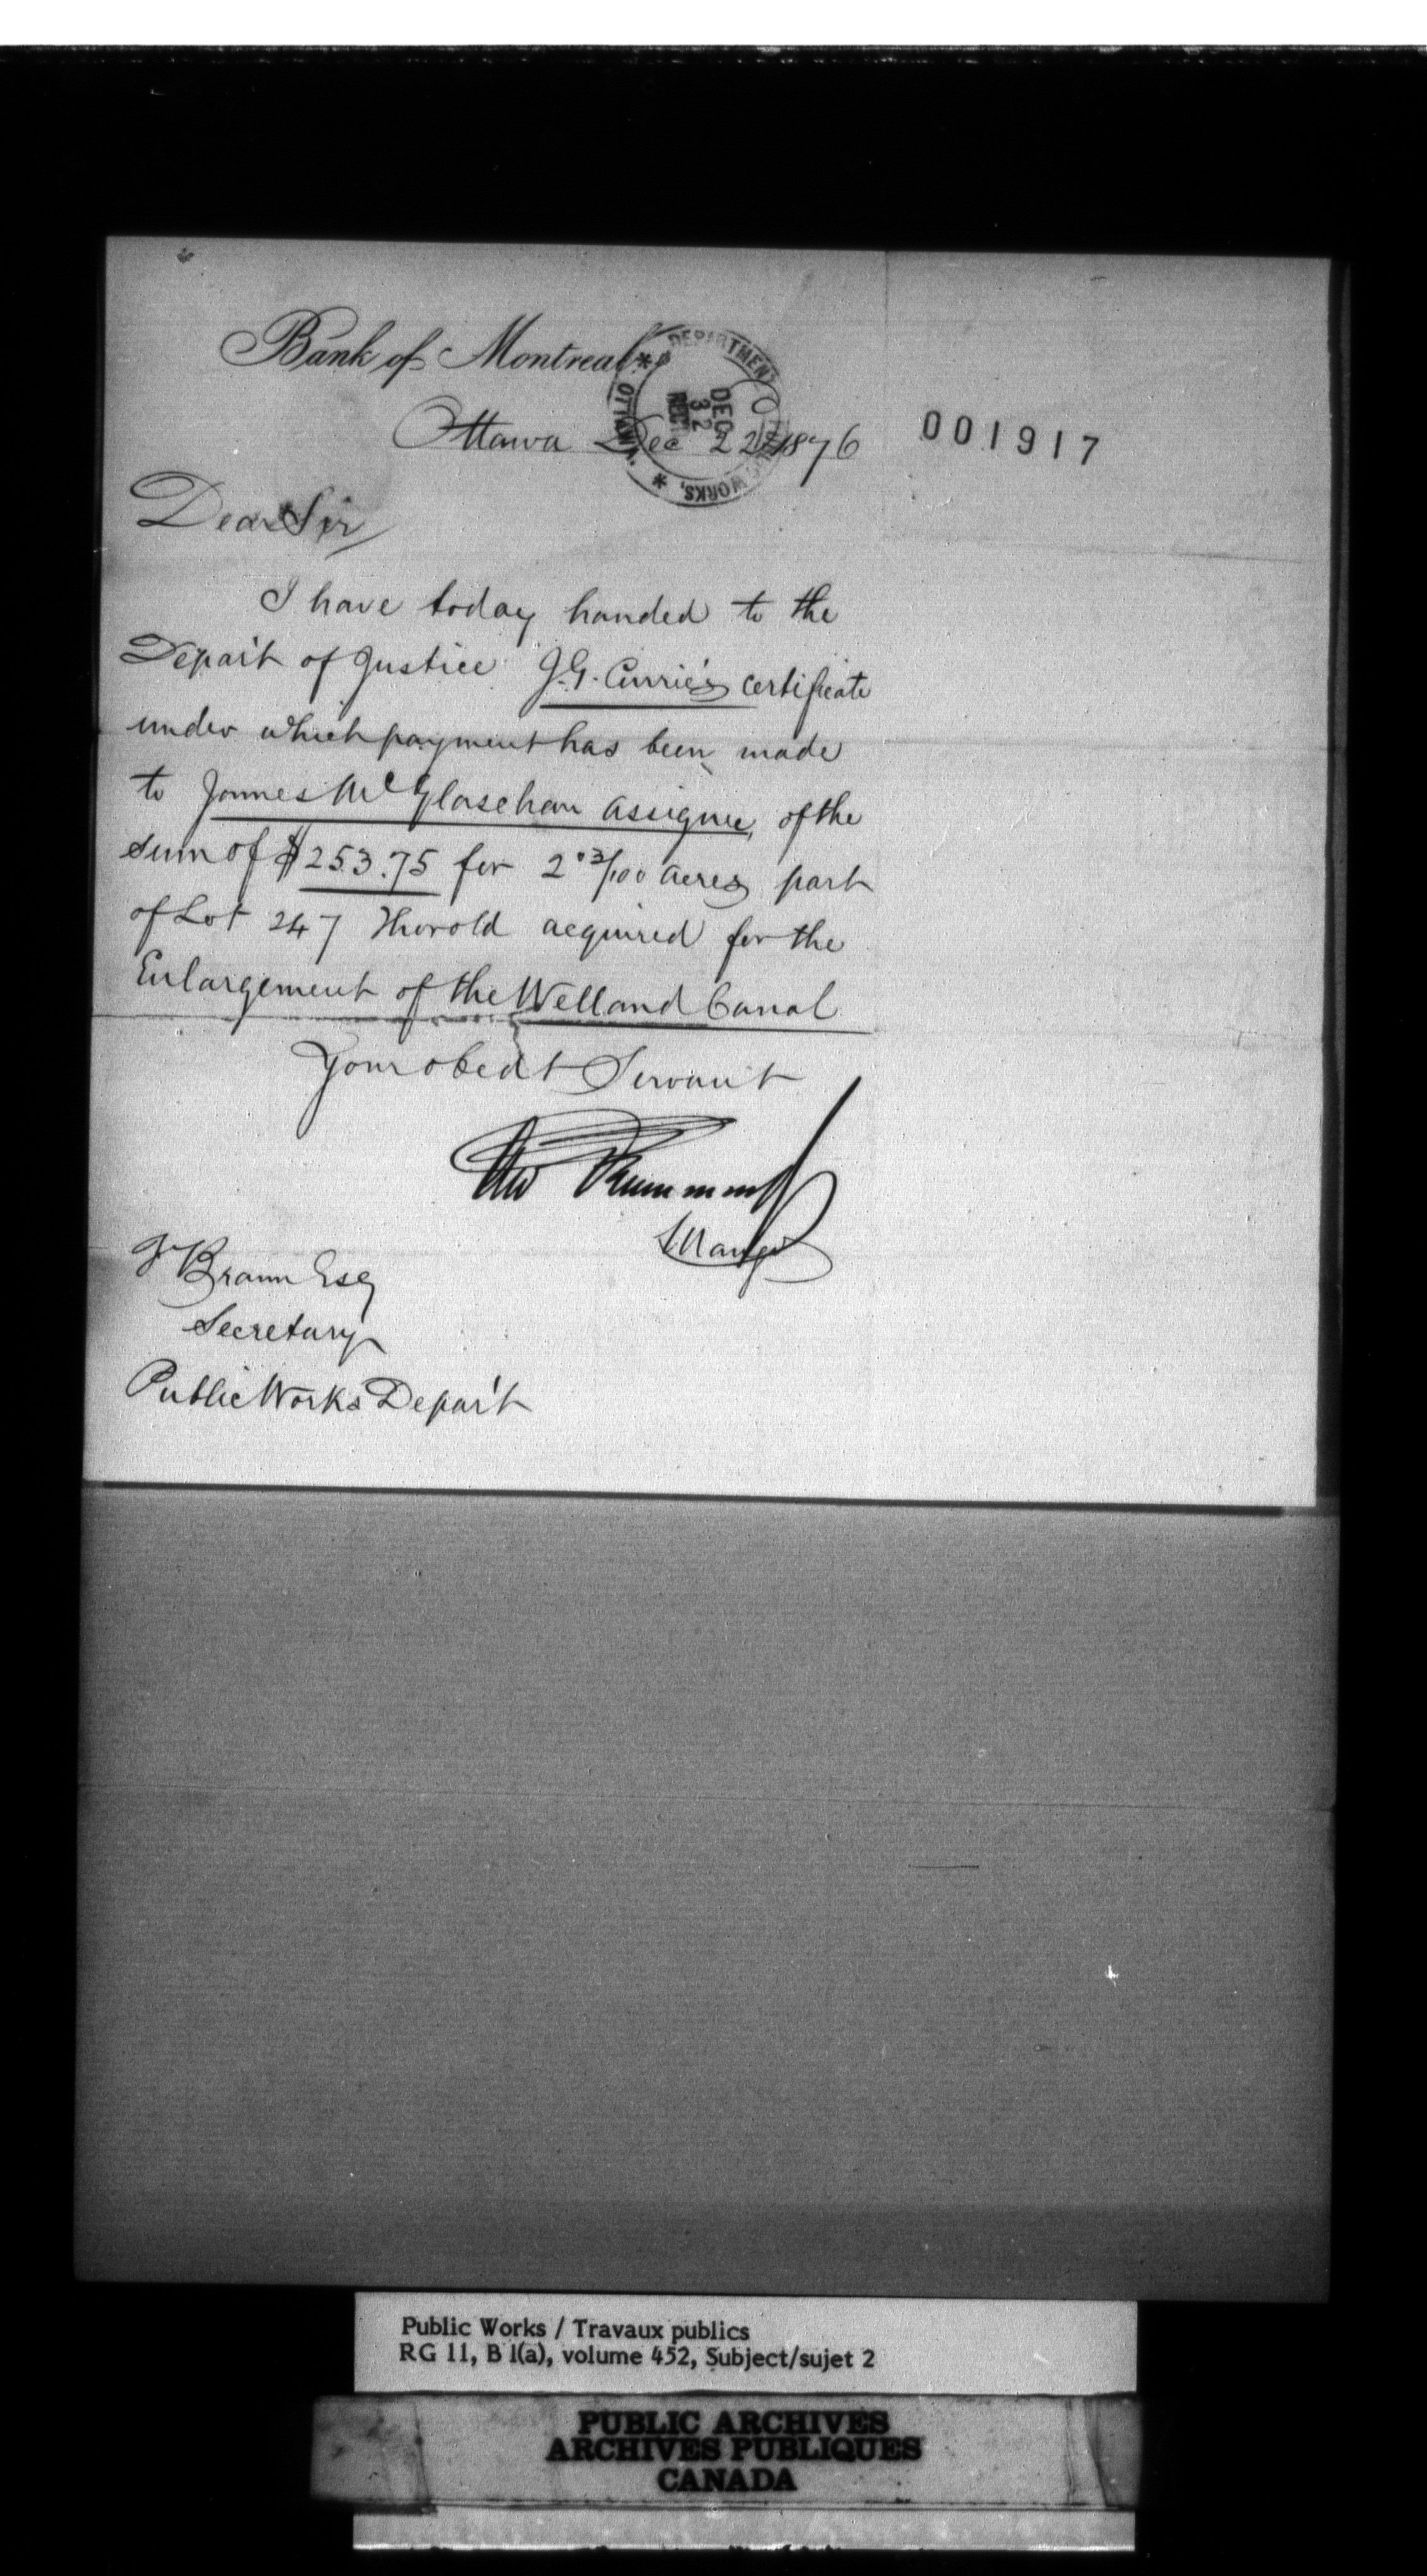 Bank of Montreal
DEPARTMENT WORKS, OTTAWA
DEC
Ottawa Dec 22 1876
001917
Dear Sir
I have today handed to the
Depar't of Justice J.G. Currie's certificate
under which payment has been made
to James McGlaschan assignee, of the
sum of $253.75 for 2 03/100 acres part
of Lot 247 Thorold acquired for the
Enlargement of the Welland Canal
Your obedt Servant
Drummond
Manager
F Braun Esq
Secretary
Public Works Depar't
Public Works / Travaux publics
RG 11, B 1(a), volume 452, Subject/sujet 2
PUBLIC ARCHIVES
ARCHIVES PUBLIQUES
CANADA